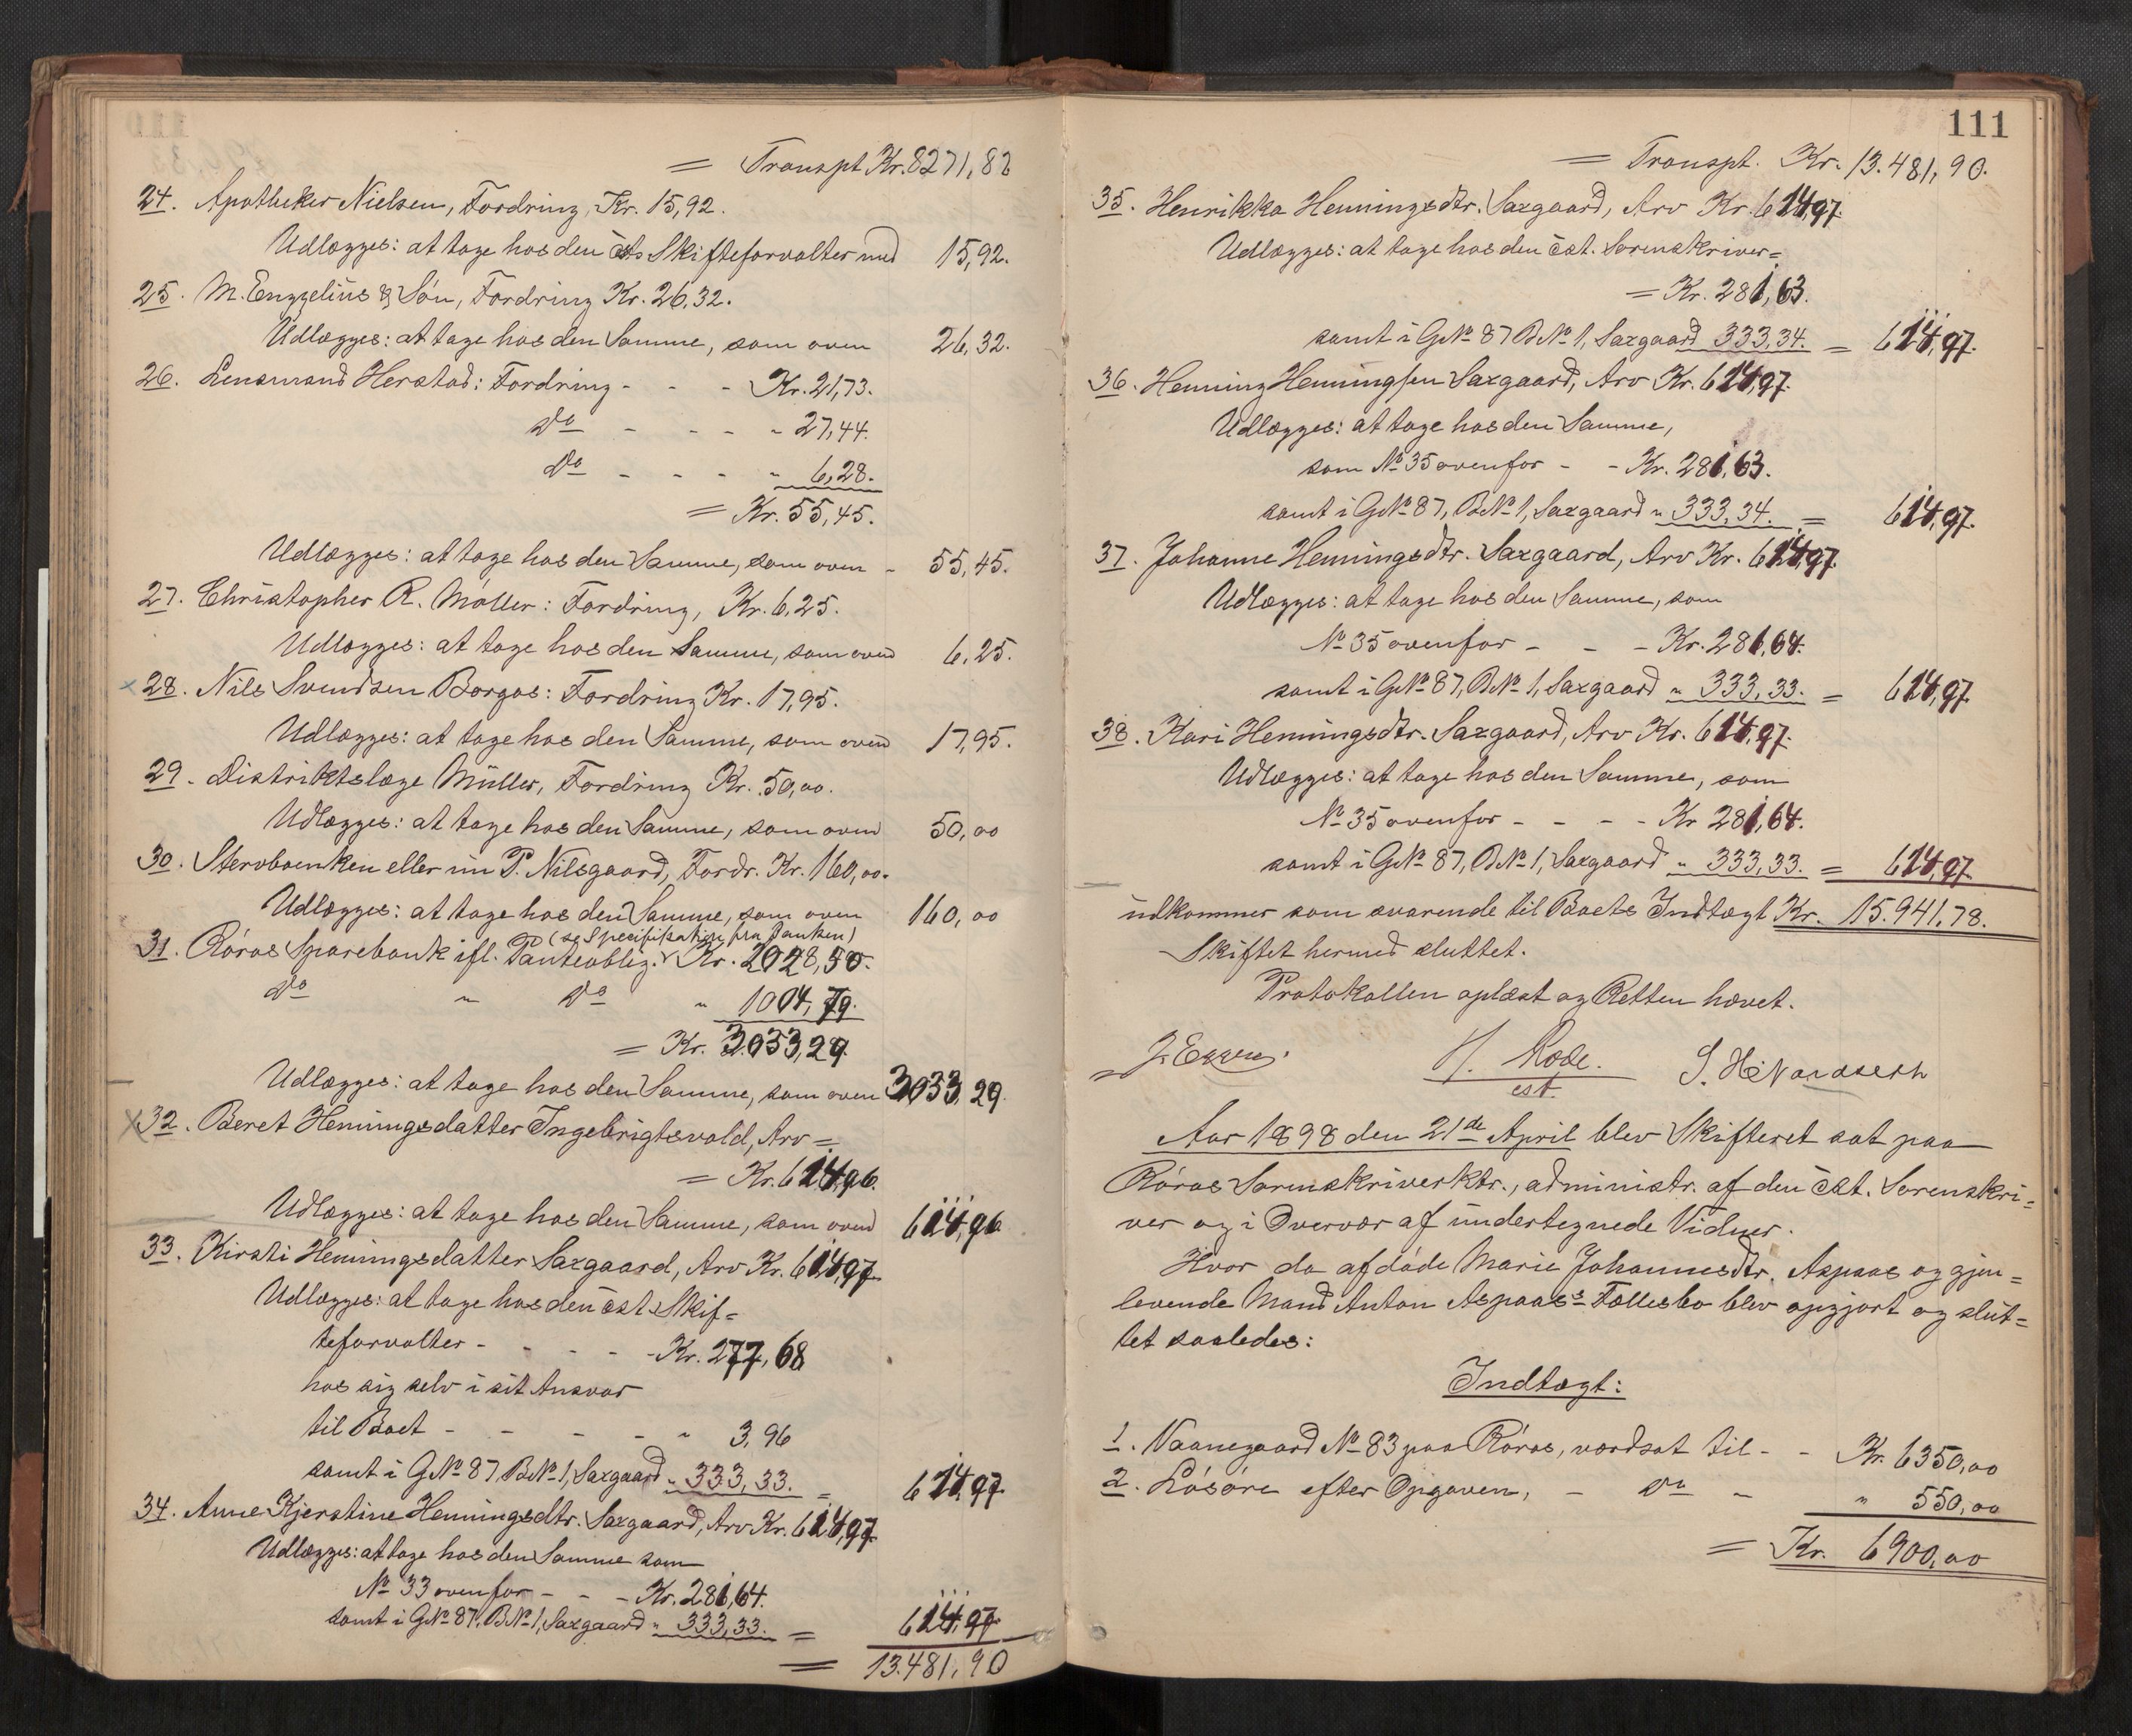 = Transpt Kr. 8271,82
24. Apotheker Nielsen, Fordring, Kr. 15,92.
Udlægges: at tage hos den cst. Skifteforvalter med 15,92.
25. M. Engzelius & Søn, Fordring Kr. 26,32.
Udlægges: at tage hos den Samme, som oven 26,32.
26. Lensmand Herstad: Fordring - - - Kr. 21,73.
Do - - - - " 27,44.
Do - - - - " 6,28.
= Kr. 55,45.
Udlægges: at tage hos den Samme, som oven - 55,45.
27. Christopher R. Møller: Fordring, Kr. 6,25.
Udlægges: at tage hos den Samme, som oven 6,25.
28. Nils Svendsen Borgos: Fordring Kr. 17,95.
Udlægges: at tage hos den Samme, som oven 17,95.
29. Distriktslæge Müller, Fordring Kr. 50,00.
Udlægges: at tage hos den Samme, som oven 50,00
30. Stervboenken eller nu P. Nilsgaard, Fordr. Kr. 160,00.
Udlægges: at tage hos den Samme, som oven 160,00
(se Specifikation fra Banken)
31. Røros Sparebank ifl. Panteoblig. Kr. 2028,50.
Do " Do " 1004,79.
= Kr. 3033,29.
Udlægges: at tage hos den Samme, som oven 3033,29.
32. Beret Henningsdatter Ingebrigtsvold, Arv =
= Kr. 614,96.
Udlægges: at tage hos den Samme, som oven 614,96
33. Kirsti Henningsdatter Saxgaard, Arv Kr. 614,97.
Udlægges: at tage hos den cst. Skif=
teforvalter - - - - - Kr. 277,68
hos sig selv i sit Ansvar
til Boet - - - - " 3,96
samt i GNo 87, BNo 1, Saxgaard " 333,33. = 614,97.
34. Anne Kjerstine Henningsdtr. Saxgaard, Arv Kr. 614,97.
Udlægges: at tage hos den Samme som
No 33 ovenfor - - - Kr. 281,64.
samt i GNo 87, BNo 1, Saxgaard " 333,33. = 614,97.
= 13.481,90
111
= Transpt. Kr. 13.481,90.
35. Henrikka Henningsdtr. Saxgaard, Arv Kr. 614,97.
Udlægges: at tage hos den cst. Sorenskriver=
= Kr. 281,63.
samt i GNo 87 BNo 1, Saxgaard 333,34. = 614,97.
36. Henning Henningsen Saxgaard, Arv Kr. 614,97.
Udlægges: at tage hos den Samme,
som No 35 ovenfor - - Kr. 281,63.
samt i GNo 87, BNo 1, Saxgaard " 333,34. = 614,97.
37. Johanne Henningsdtr. Saxgaard, Arv Kr. 614,97.
Udlægges: at tage hos den Samme, som
No 35 ovenfor - - - Kr. 281,64.
samt i GNo 87, BNo 1, Saxgaard " 333,33. = 614,97.
38. Kari Henningsdtr. Saxgaard, Arv Kr. 614,97.
Udlægges: at tage hos den Samme, som
No 35 ovenfor - - - - Kr 281,64.
samt i GNo 87, BNo 1, Saxgaard " 333,33. = 614,97.
udkommer som svarende til Boets Indtægt Kr. 15.941,78.
Skiftet hermed sluttet.
Protokollen oplæst og Retten hævet.
H. Rode. 
cst.
Aar 1898 den 21de April blev Skifteret sat paa
Røros Sorenskriverktr., administr. af den cst. Sorenskri=
ver og i Overvær af undertegnede Vidner.
Hvor da afdøde Marie Johannesdtr. Aspaas og gjen=
levende Mand Anton Aspaas's Fællesbo blev opgjort og slut=
tet saaledes:
Indtægt:
1. Vaanegaard No 83 paa Røros, værdsat til - - Kr. 6350,00
2. Løsøre efter Opgaven, - Do - " 550,00
= Kr. 6900,00